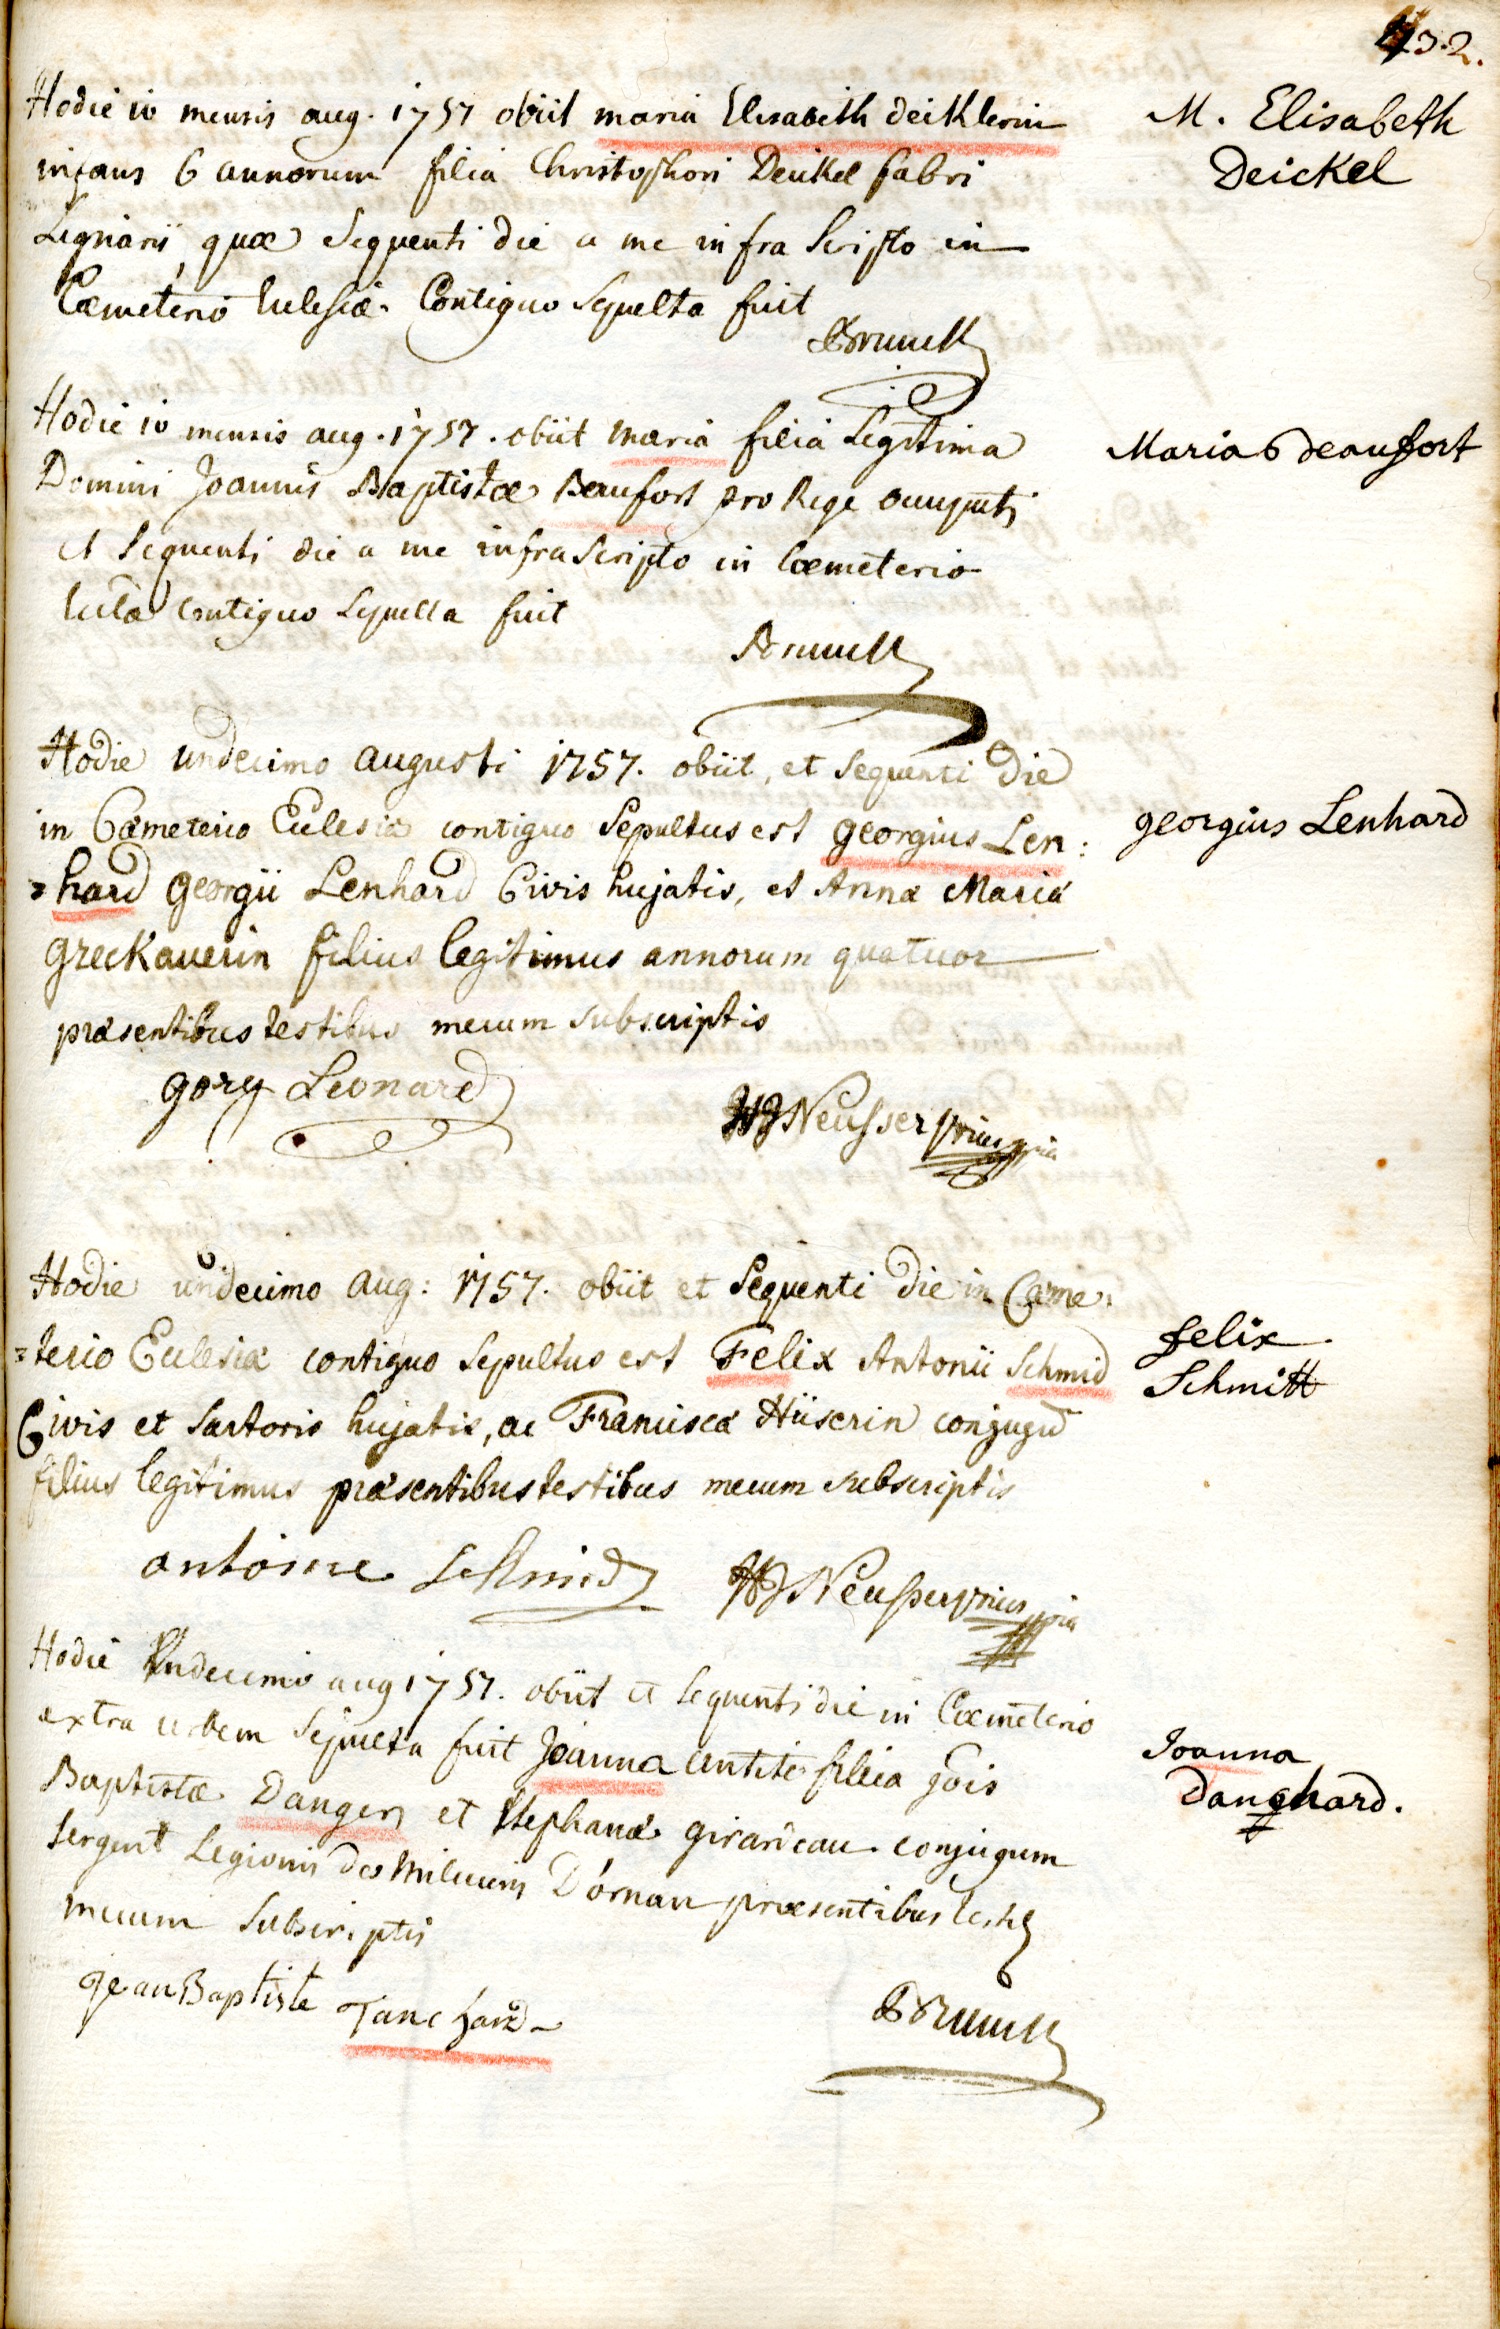 432.
Hodie 10 mensis aug. 1757 obiit maria Elisabeth deiklerin
infans 6 annorum filia Christophori Deickel fabri
Lignarii quæ sequenti die a me infra scripto in
Cœmeterio Eclesiæ Contiguo sepulta fuit
M. Elisabeth
Deickel
Hodie 10 mensis aug. 1757. obiit maria filia Legitima
Domini Joannis Baptistæ Beaufort pro Rege
et sequenti die a me infra scripto in Cœmeterio
contiguo sepulta fuit
Maria Beaufort
Hodie undecimo augusti 1757. obiit, et sequenti die
in Cœmeterio Eclesiæ contiguo sepultus est georgius Len:
=hard georgii Lenhard Civis hujatis, et Annæ Mariæ
greckauerin filius legitimus annorum quatuor
præsentibus testibus mecum subscriptis
gorg Leonard
Neusser
georgius Lenhard
Hodie undecimo aug: 1757. obiit et sequenti die in Cœme:
=terio Eclesiæ contiguo sepultus est Felix Antonii Schmid
Civis et sartoris hujatis, ac Franciscæ Hüserin conjugum
filius legitimus præsentibus testibus mecum subscriptis
antoine Schmid
Neusser
felix
Schmitt
Hodie undecimo aug 1757. obiit et sequenti die in Cœmeterio
extra urbem sepulta fuit Joanna filia
Baptistæ Danger et stephanæ girardeau conjugum
sergent Legionis des D'ornan præsentibus
mecum subscriptis
jean Baptiste Tanchard
Joanna
Danghard.